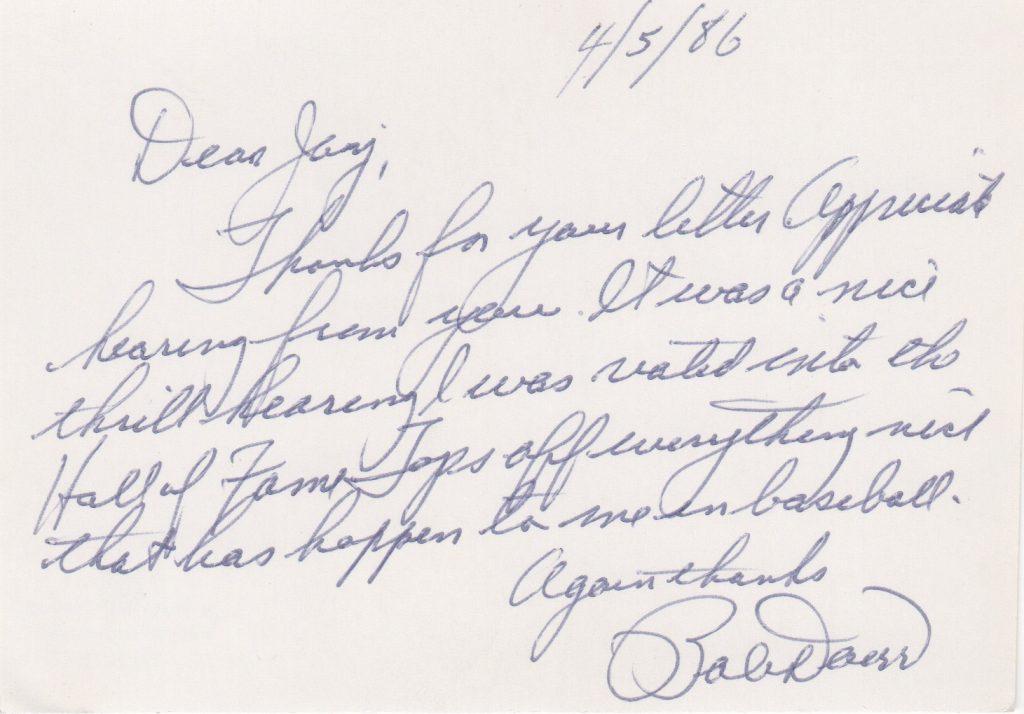 4/5/86
Dear Jay,
Thanks for your letter Appreciate
hearing from you. It was a nice
thrill hearing I was voted into the
Hall of Fame. Tops off everything nice
that has happen to me in baseball.
Again thanks
Bob Doerr